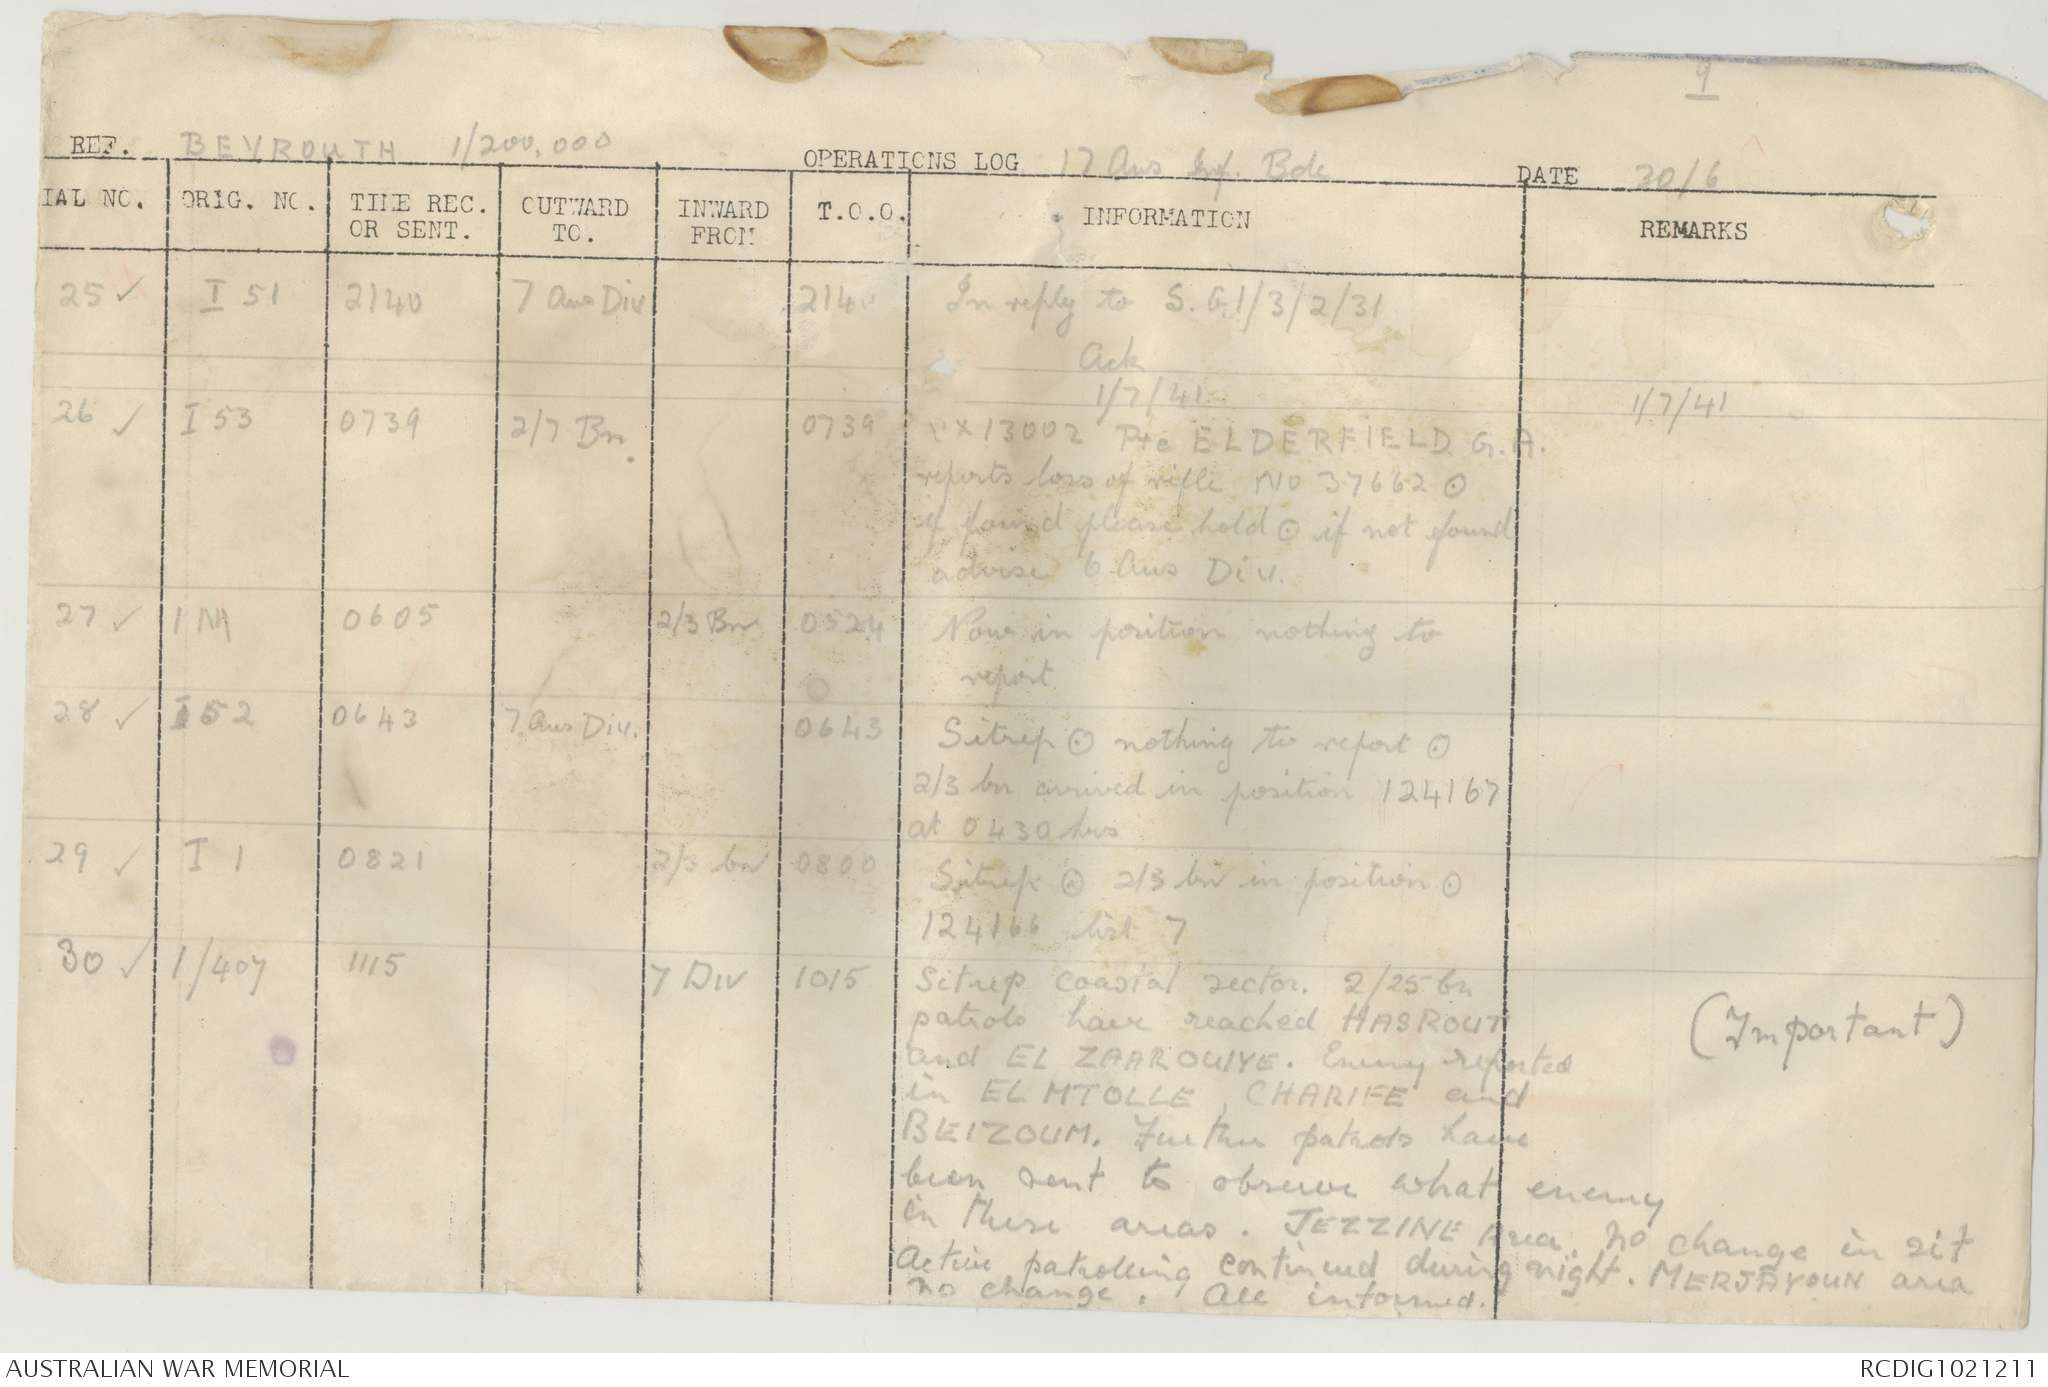 9
REF. BEYROUTH 1/200,000 OPERATIONS LOG 17 Aus Inf. Bde DATE 30/6
IAL NO. ORIG. NO. TIME REC. OR SENT. OUTWARD TO. INWARD FROM T.O.O. INFORMATION REMARKS
25 ✓ I 51 2140 7 Aus Div 2140 In reply to S.G.1/3/2/31
Ack
1/7/41 1/7/41
26 ✓ I 53 0739 2/7 Bn. 0739 VX13002 Pte ELDERFIELD G.A.
reports loss of rifle No 37662 ⊙
if found please hold ⊙ if not found
advise 6 Aus Div.
27 ✓ 0605 2/3 Bn 0524 Now in position nothing to
report
28 ✓ I 52 0643 7 Aus Div. 0643 Sitrep ⊙ nothing to report ⊙
2/3 bn arrived in position 124167
at 0430 hrs
29 ✓ I 1 0821 2/3 bn 0800 Sitrep ⊙ 2/3 bn in position ⊙
124166 list 7
30 ✓ 1/407 1115 7 Div 1015 Sitrep coastal sector. 2/25 bn
patrols have reached HASROUT (Important)
and EL ZAAROUIYE. Enemy reported
in EL MTOLLE, CHARIFE and
BEIZOUM. Further patrols have
been sent to observe what enemy
in these areas. JEZZINE Area. No change in sit
Active patrolling continued during night. MERJAYOUN area
no change. All informed.
AUSTRALIAN WAR MEMORIAL RCDIG1021211